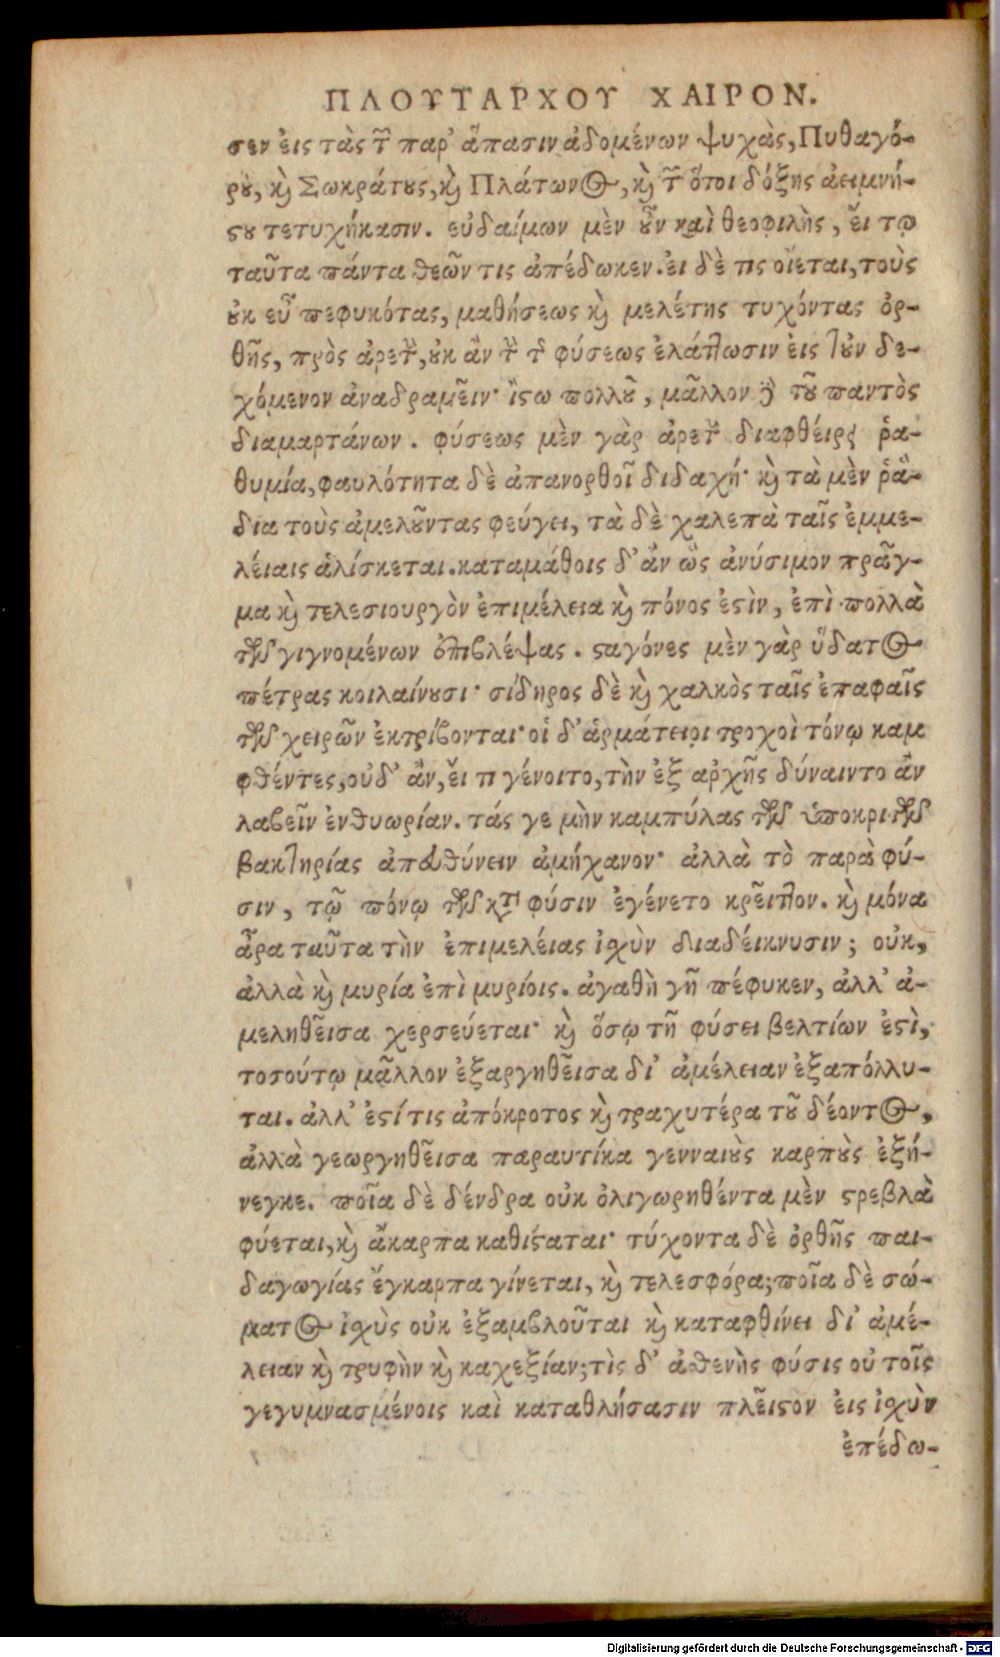 ΠΛΟΥΤΑΡΧΟΥ ΧΑΙΡΟΝ.
σεν ἐις τὰς τ͂ παρ' ἅπασιν ἀδομένων ψυχὰς, Πυθαγό-
ρȣ, κ̀ Σωκράτȣς, κ̀ Πλάτωνος, κ̀ τ͂ ὅτοι δόξης ἀειμνή-
ϛȣ τετυχήκασιν. εὐδαίμων μὲν ȣ̃ν καὶ θεοφιλὴς, ἔι τῳ
ταῦτα πάντα θεῶν τις ἀπέδωκεν. ἐι δὲ τις οἴεται, τοὺς
ȣκ εὖ πεφυκότας, μαθήσεως κ̀ μελέτης τυχόντας ὀρ-
θῆς, πρὸς ἀρετ, ȣκ ἂν τ τ φύσεως ἐλάττωσιν ἐις τȣν δε-
χόμενον ἀναδραμεῖν· ἴϛω πολλȣ̃, μᾶλλον δ τȣ̃ παντὸς
διαμαρτάνων. φύσεως μὲν γὰρ ἀρετ διαφθείρει ῥα-
θυμία, φαυλότητα δὲ ἀπανορθοῖ διδαχή· κ̀ τὰ μὲν ῥᾴ-
δια τοὺς ἀμελȣ̃ντας φεύγει, τὰ δὲ χαλεπὰ ταῖς ἐμμε-
λέιαις ἁλίσκεται. καταμάθοις δ' ἂν ὡς ἀνύσιμον πρᾶγ-
μα κ̀ τελεσιουργὸν ἐπιμέλεια κ̀ πόνος ἐϛὶν, ἐπὶ πολλὰ
τῶν γιγνομένων ἐπιβλέψας. ϛαγόνες μὲν γὰρ ὕδατος
πέτρας κοιλαίνȣσι· σίδηρος δὲ κ̀ χαλκὸς ταῖς ἐπαφαῖς
τῶν χειρῶν ἐκτρίβονται· οἱ δ' ἁρμάτειοι τροχοὶ τόνῳ καμ
φθέντες, οὐδ' ἂν, ἔι τι γένοιτο, τὴν ἐξ αρχῆς δύναιντο ἂν
λαβεῖν ἐνθυωρίαν. τάς γε μὴν καμπύλας τῶν ὑποκριτῶν
βακτηρίας ἀπευθύνειν ἀμήχανον· ἀλλὰ τὸ παρὰ φύ-
σιν, τῷ πόνῳ τῶν κτ φύσιν ἐγένετο κρεῖττον. κ̀ μόνα
ἆρα ταῦτα τὴν ἐπιμελείας ἰχὺν διαδέικνυσιν; οὐκ,
ἀλλὰ κ̀ μυρία ἐπὶ μυρίοις. ἀγαθὴ γῆ πέφυκεν, ἀλλ' ἀ-
μεληθεῖσα χερσεύεται· κ̀ ὅσῳ τῆ φύσει βελτίων ἐϛὶ,
τοσούτῳ μᾶλλον ἐξαργηθεῖσα δι' ἀμέλειαν ἐξαπόλλυ-
ται. ἀλλ' ἐϛί τις ἀπόκροτος κ̀ τραχυτέρα τȣ̃ δέοντος,
ἀλλὰ γεωργηθεῖσα παραυτίκα γενναιȣς καρπȣς ἐξή-
νεγκε. ποῖα δὲ δένδρα οὐκ ὀλιγωρηθέντα μὲν ϛρεβλὰ
φύεται, κ̀ ἄκαρπα καθίϛαται· τύχοντα δὲ ὀρθῆς παι-
δαγωγίας ἔγκαρπα γίνεται, κ̀ τελεσφόρα; ποῖα δὲ σώ-
ματος ἰχὺς οὐκ ἐξαμβλοῦται κ̀ καταφθίνει δι' ἀμέ-
λειαν κ̀ τρυφὴν κ̀ καχεξίαν; τὶς δ' ἀθενὴς φύσις οὐ τοῖς
γεγυμνασμένοις καὶ καταθλήσασιν πλεῖϛον ἐις ἰχὺν
ἐπέδω-
Digitalisierung gefördert durch die Deutsche Forschungsgemeinschaft - DFG